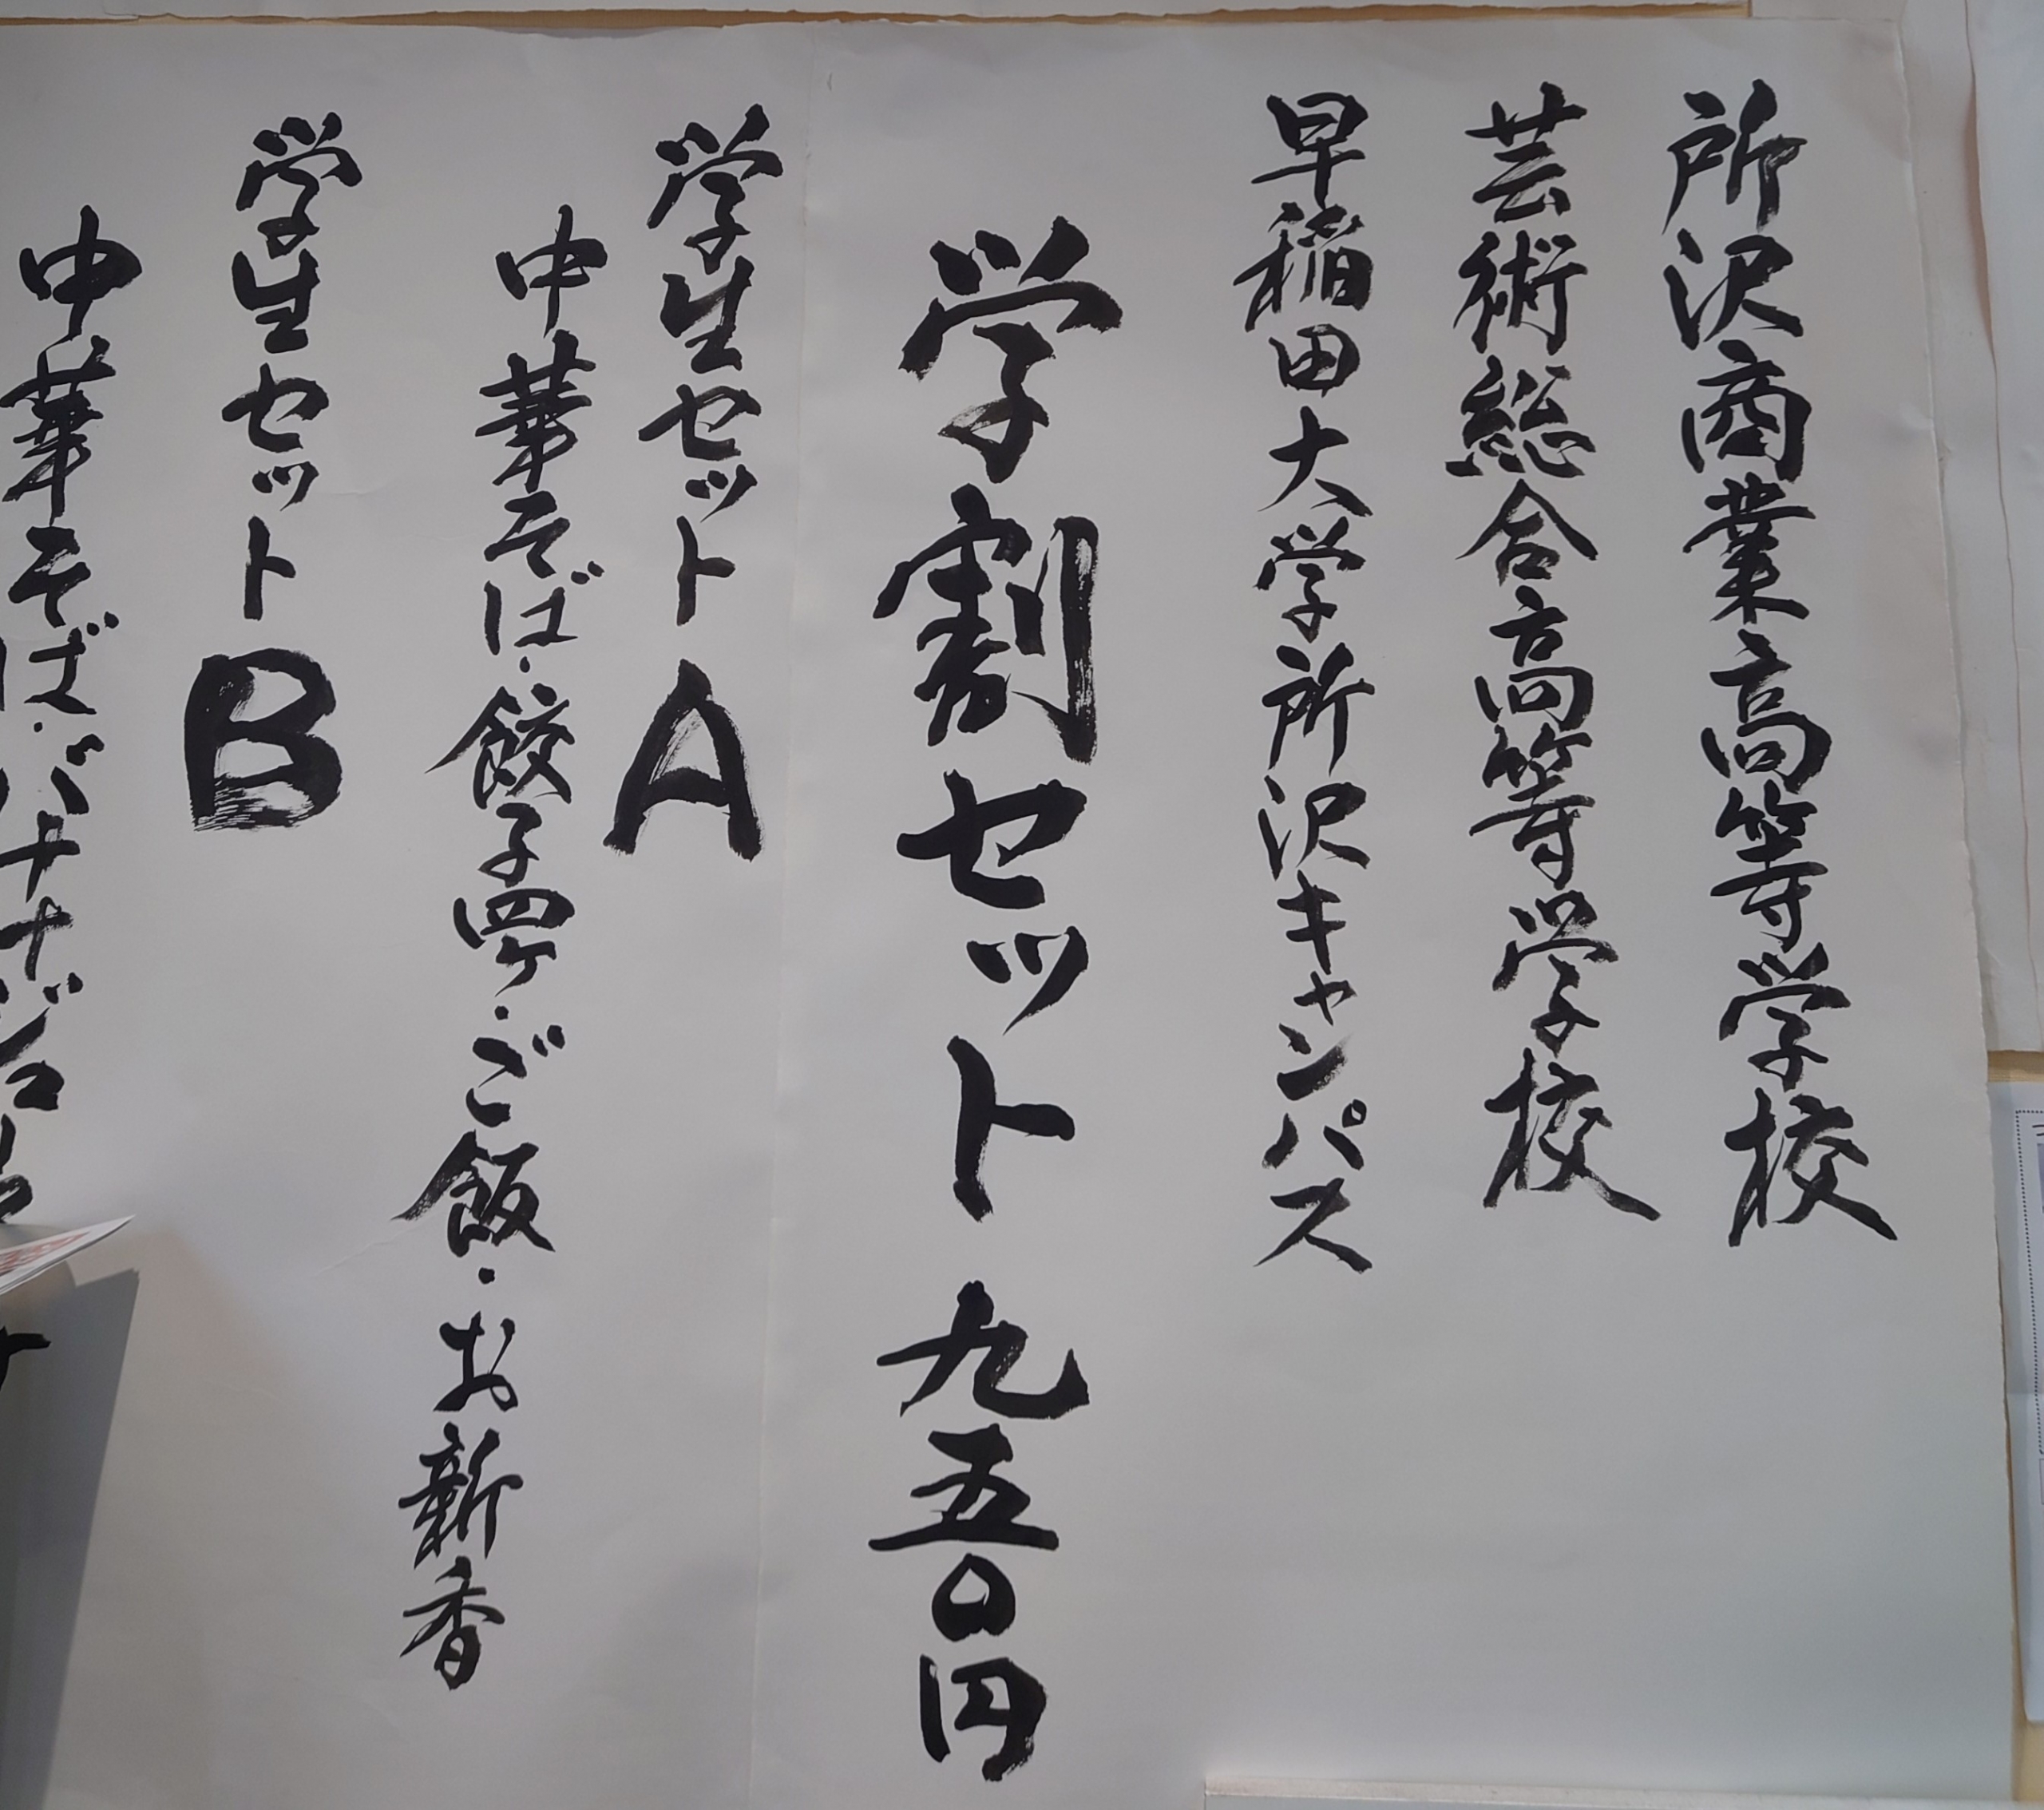 所沢商業高等学校
芸術総合高等学校
早稲田大学所沢キャンパス
学割セット 九五〇円
学生セットA
中華そば・餃子四ヶ・ご飯・お新香
学生セットB
中華そば・バナナジュ